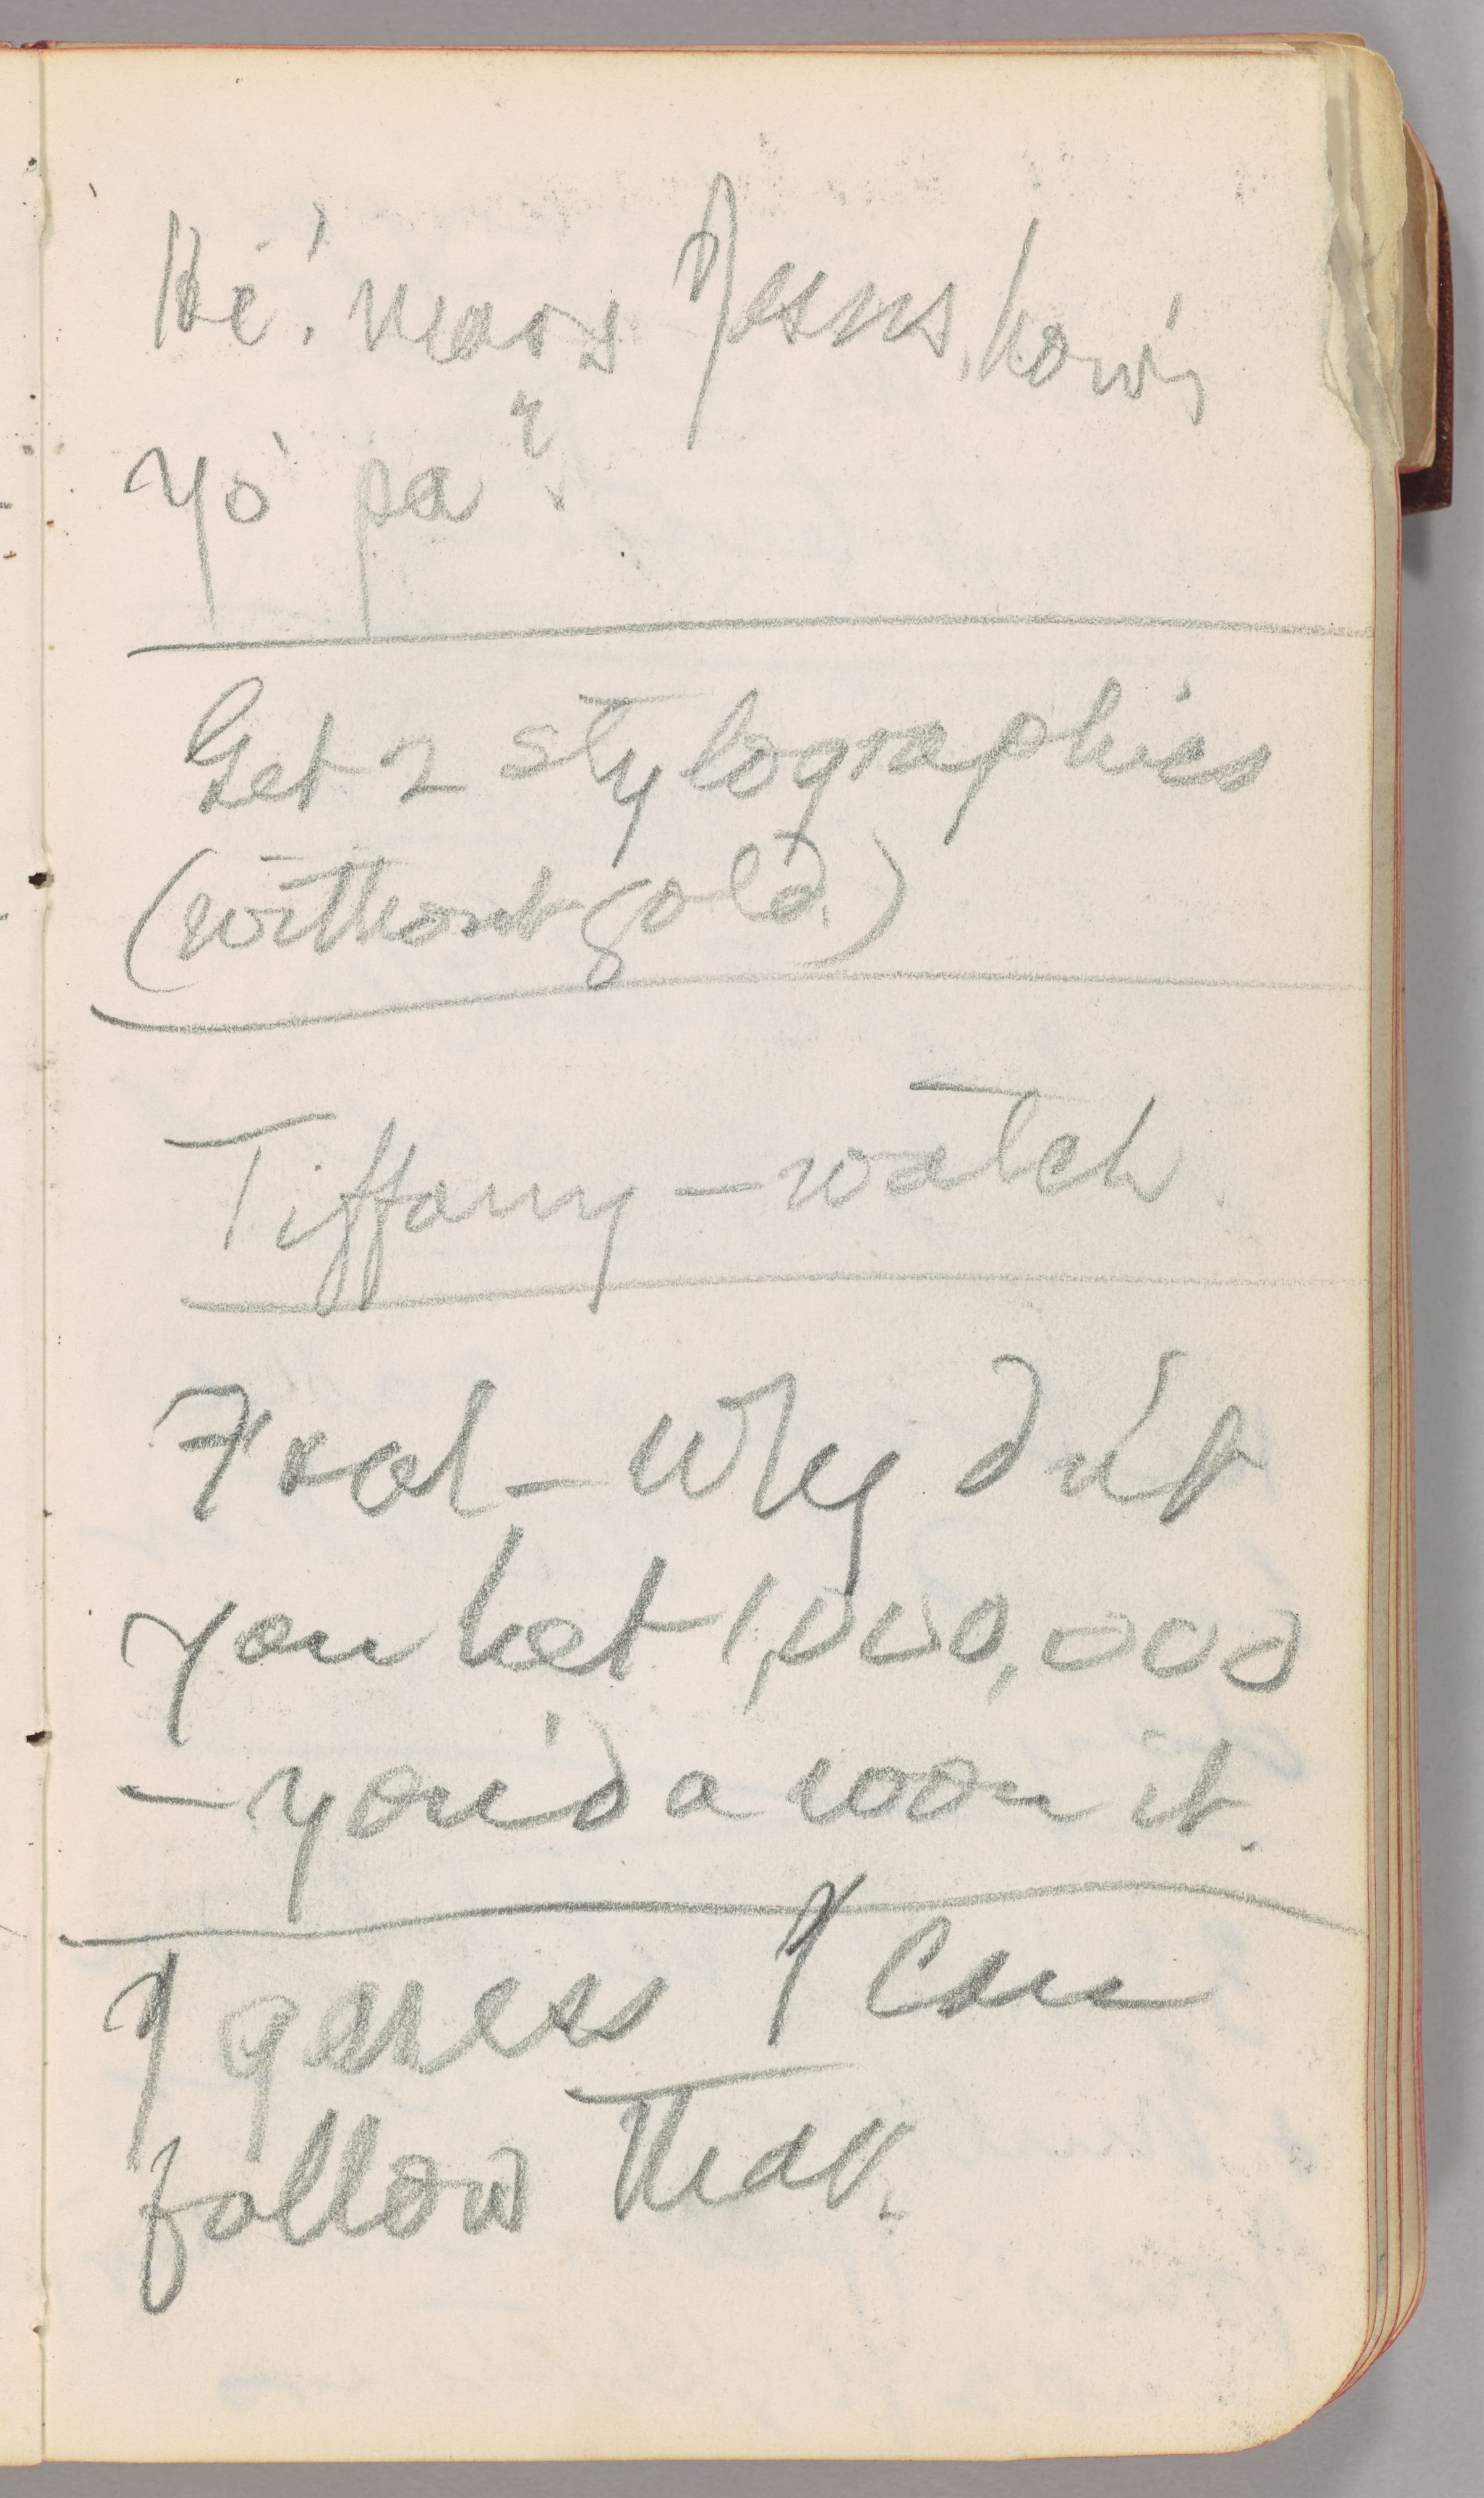 He'! mars Jesus, how's
yo' pa?
Get 2 stylographics
(without gold.)
Tiffany — watch.
Fool — Why did't
you bet 1,000,000
— you'd a won it.
I guess I can
follow that.